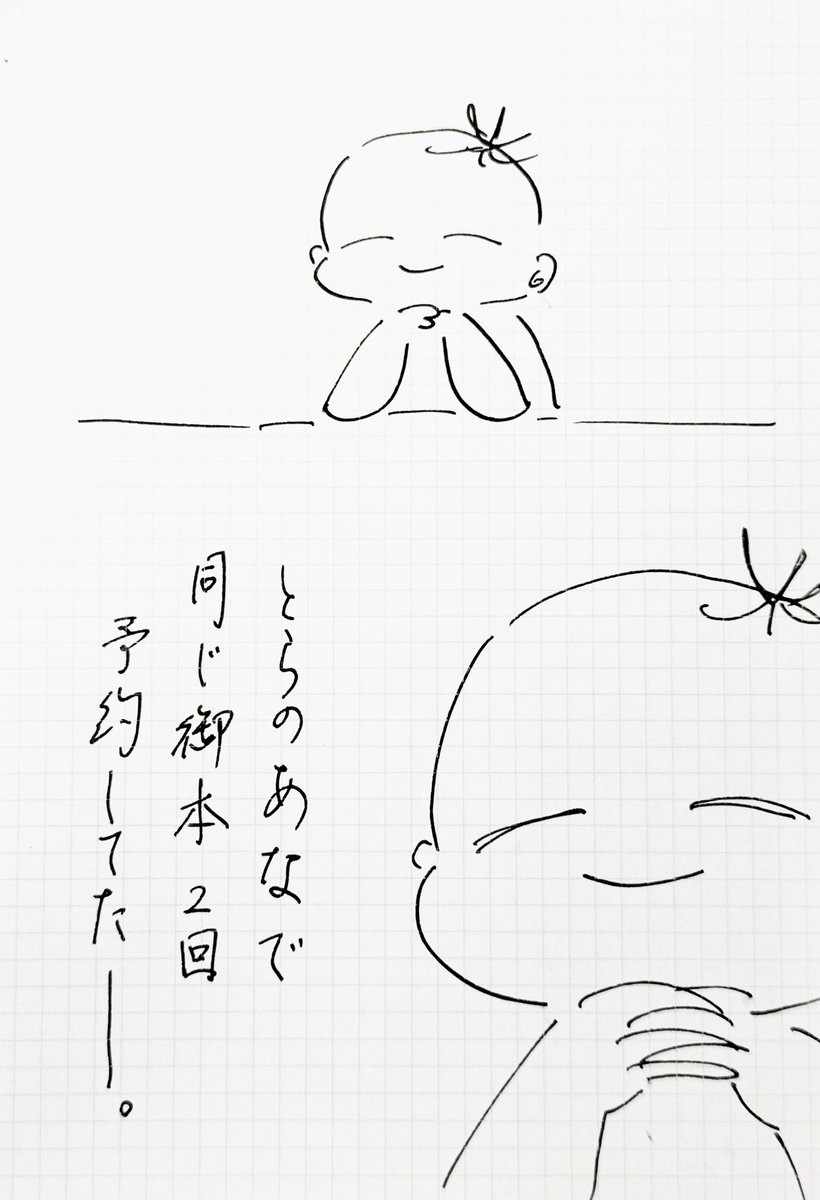 とらのあなで
同じ御本2回
予約してたーー。